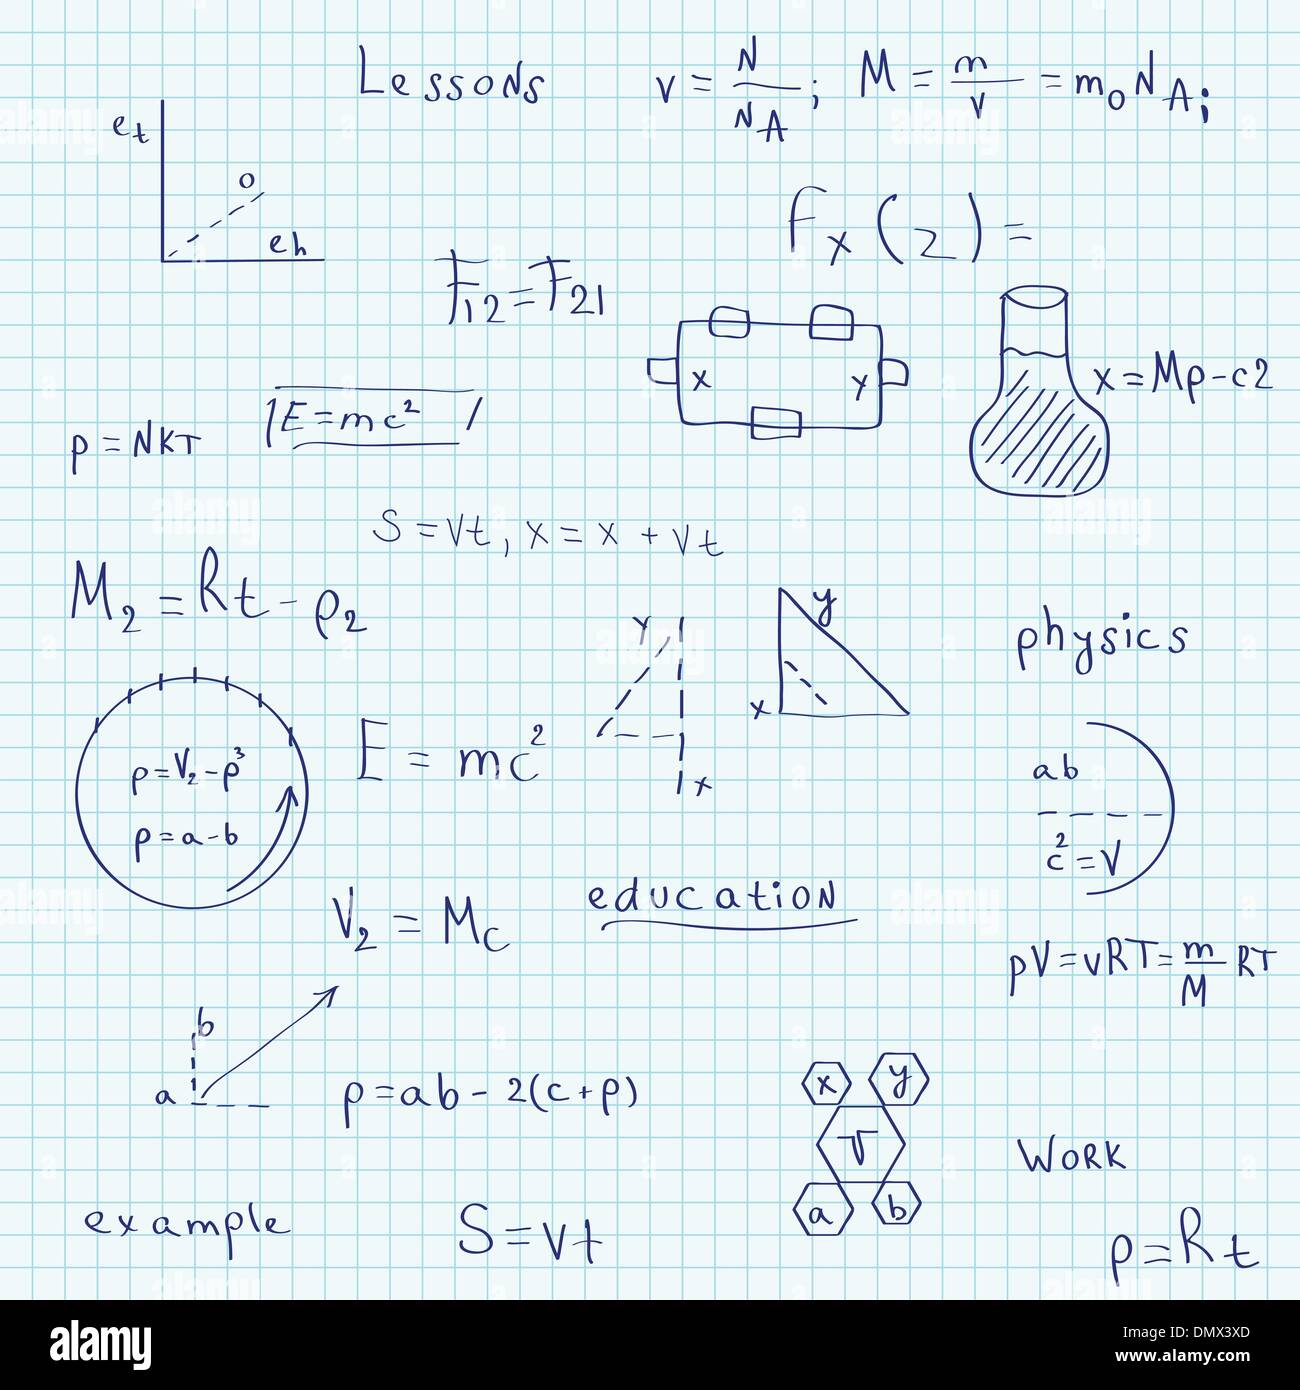 Lessons
v = N/NA; M = m/v = m0NA;
et
o
eh
Fx(2) =
F12 = F21
x
y
x = Mp - c2
E = mc²
p = NKT
S = vt, x = x + vt
M2 = Rt - p2
y
x
y
x
physics
p = V2 - p³
p = a - b
E = mc²
ab
c² = V
V2 = Mc
education
pV = vRT = m/M RT
b
a
p = ab - 2(c + p)
x
y
a
b
WORK
example
S = vt
p = Rt
alamy
Image ID: DMX3XD
www.alamy.com